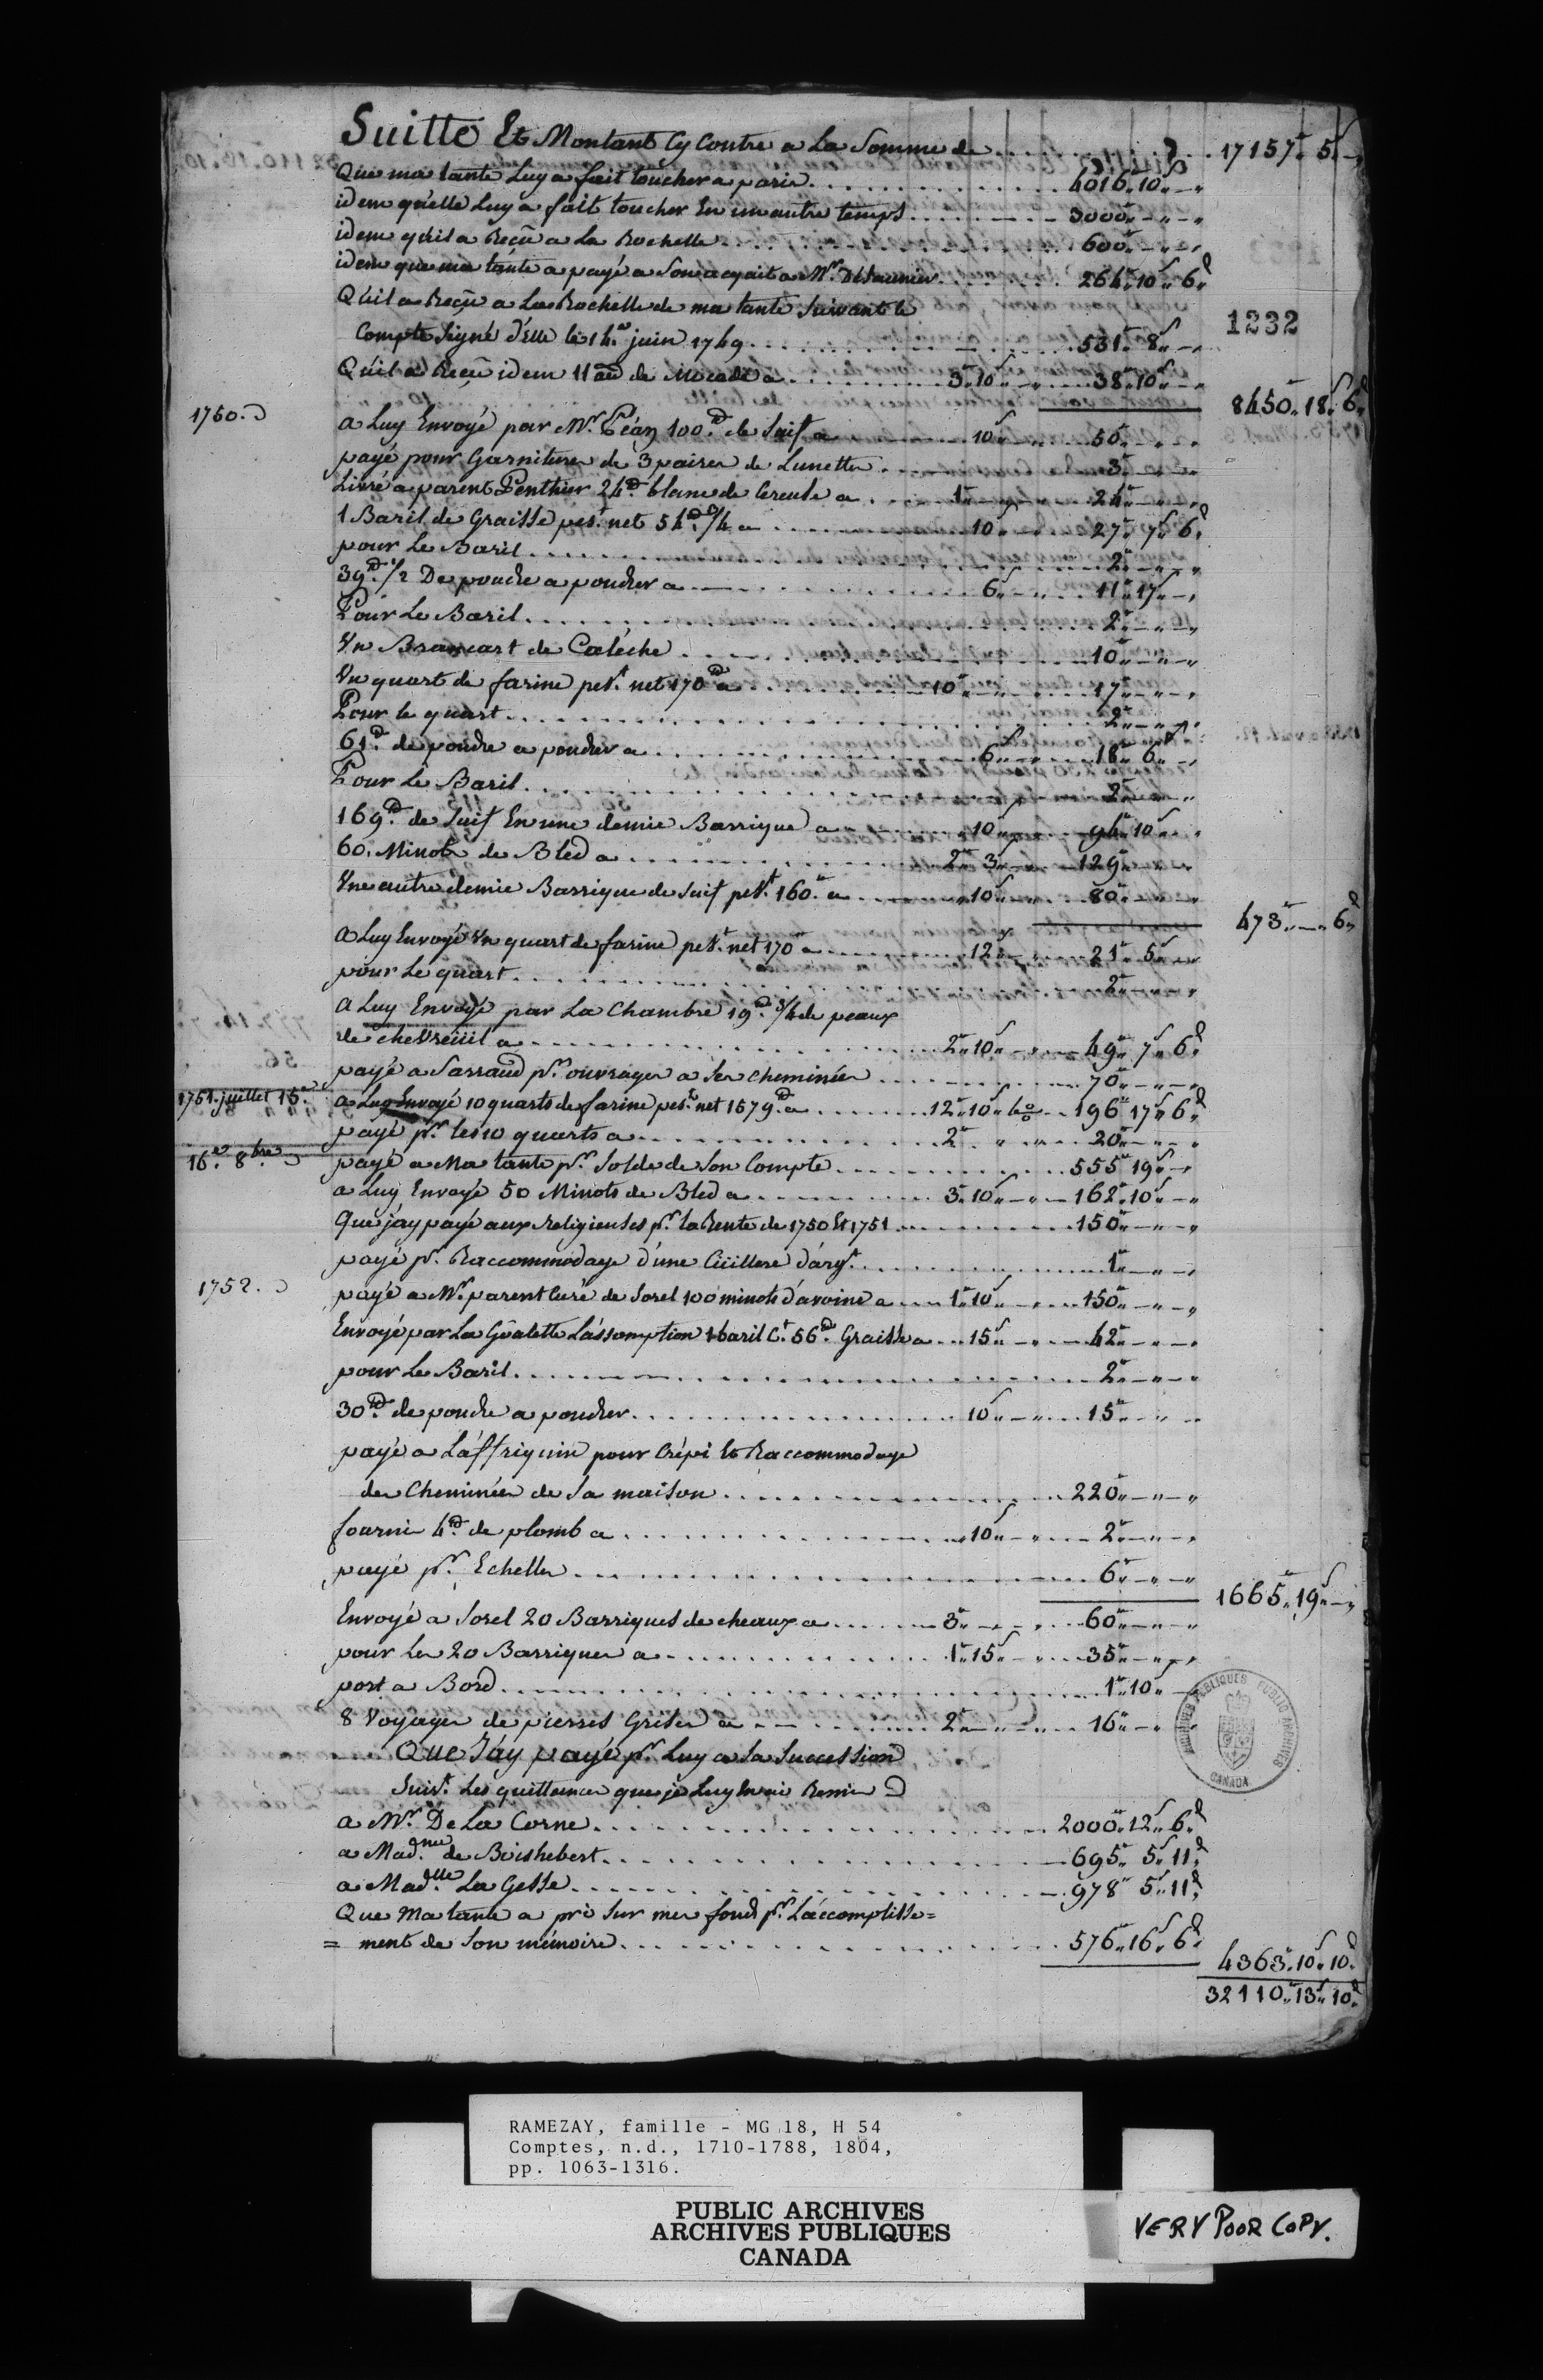 Suitte Et Montant Cy Contre a La Somme de ........ 17157" 5s "
Que ma tante Luy a fait toucher a paris ........ 4016" 10s "
idem qu'elle Luy a fait toucher En un autre temps ........ 3000" " "
idem qu'il a Reçû a La Rochelle ........ 600" " "
idem que ma tante a payé a Son acquit a Mr. ........ 264" 10s 6d
Qu'il a Reçû a La Rochelle de ma tante Suivant le
Compte Signé d'Elle le 14e juin 1749 ........ 531" 8s "
1232
Qu'il a Reçû idem 11 au de a ........ 3" 10s " ........ 38" 10s "
8450" 18s 6d
1750.
a Luy Envoyé par Mr. Péan 100 d. de Suif a ........ 10s " ........ 50" " "
payé pour Garnitures de 3 paires de Lunettes ........ 3" " "
Livré a parent Penthier 24 d. blanc de Ceruse a ........ 1" " " ........ 24" " "
1 Baril de Graisse pest. net 54 d. 3/4 a ........ 10s " ........ 27" 7s 6d
pour Le Baril ........ 2" " "
39 d. 1/2 De poudre a poudrer a ........ 6s " ........ 11" 17s "
Pour Le Baril ........ 2" " "
Vn Brancart de Caléche ........ 10" " "
Vn quart de farine pest. net 170 d. a ........ 10" " " ........ 17" " "
Pour le quart ........ 2" " "
61 d. de poudre a poudrer a ........ 6s " ........ 18" 6s "
Pour Le Baril ........ 2" " "
169 d. de Suif En une demie Barrique a ........ 10s " ........ 94" 10s "
60. Minots de Bled a ........ 2" 3s " ........ 129" " "
Vne autre demie Barrique de Suif pest. 160" a ........ 10s " ........ 80" " "
473" " 6d
a Luy Envoyé Vn quart de farine pest. net 170" a ........ 12" " ........ 21" 5s "
pour Le quart ........ 2" " "
a Luy Envoyé par La Chambre 19 d. 3/4 de peaux
de chevreüil a ........ 2" 10s " ........ 49" 7s 6d
payé a Sarraud pr. ouvrages a Ses cheminées ........ 70" " "
1751. juillet 15e
a Luy Envoyé 10 quarts de farine pest. net 1579 d. a ........ 12" 10s % ........ 196" 17s 6d
payé pr. les 10 quarts a ........ 2" " " ........ 20" " "
16e 8bre
payé a Ma tante pr. Solde de Son Compte ........ 555" 19s "
a Luy Envoyé 50 Minots de Bled a ........ 3" 10s " ........ 162" 10s "
Que j'ay payé aux Religieuses pr. la Rente de 1750 Et 1751 ........ 150" " "
payé pr. Raccommodage d'une Cüillere d'argt. ........ 1" " "
1752.
payé a Mr. parent Curé de Sorel 100 minots d'avoine a ........ 1" 10s " ........ 150" " "
Envoyé par La Göalette L'assomption 1 baril Ct. 56 d. Graisse a ........ 15s " ........ 42" " "
pour Le Baril ........ 2" " "
30 d. de poudre a poudrer ........ 10s " ........ 15" " "
payé a L'affriquin pour Crépi Et Raccommodage
des Cheminées de Sa maison ........ 220" " "
fourni 4 d. de plomb a ........ 10s " ........ 2" " "
payé pr. Echelles ........ 6" " "
1665" 19s "
Envoyé a Sorel 20 Barriques de cheaux a ........ 3" " " ........ 60" " "
pour Les 20 Barriques a ........ 1" 15s " ........ 35" " "
port a Bord ........ 1" 10s "
8 Voyages de pierres Grises a ........ 2" " " ........ 16" " "
Que J'ay payé pr. Luy a Sa Succession
Suivt. Les quittances que je Luy En ai Remis
a Mr. De La Corne ........ 2000" 12s 6d
a Madme. de Boishebert ........ 695" 5s 11d
a Madlle. La Gesse ........ 978" 5s 11d
Que Ma tante a pris Sur mes fonds pr. L'accomplisse=
= ment de Son mémoire ........ 576" 16s 6d
4363" 10s 10d
32110" 13s 10d
ARCHIVES PUBLIQUES PUBLIC ARCHIVES
CANADA
RAMEZAY, famille - MG 18, H 54
Comptes, n.d., 1710-1788, 1804,
pp. 1063-1316.
PUBLIC ARCHIVES
ARCHIVES PUBLIQUES
CANADA
VERY POOR COPY.